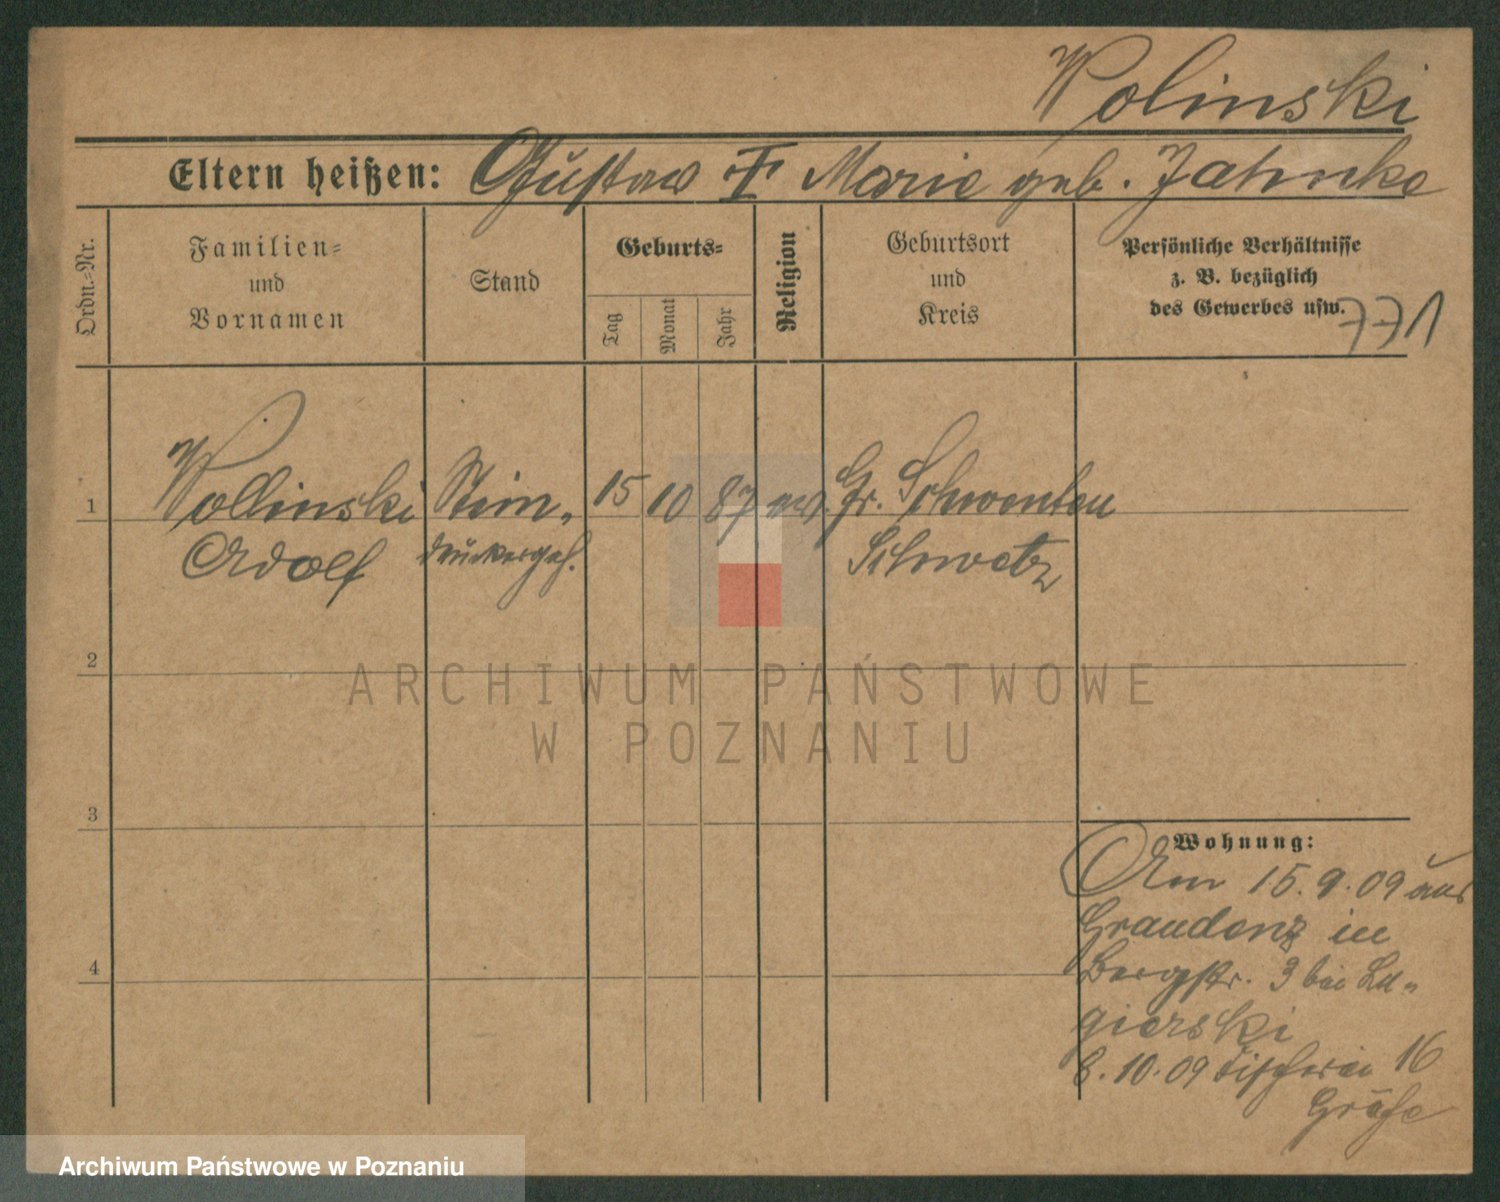 Wolinski
Eltern heißen: Gustav Ŧ Marie geb. Jahnke
Ordn.-Nr.
Familien-
und
Vornamen
Stand
Geburts-
Tag
Monat
Jahr
Religion
Geburtsort
und
Kreis
Persönliche Verhältnisse
z. B. bezüglich
des Gewerbes usw.
771
1 Wollinski Stein- 15 10 87 ev. Gr. Schwenten
Adolf druckergeh. Schwetz
2
3
4
Wohnung:
Am 15.9.09 aus
Graudenz in
Bergstr. 3 bei La-
gierski
8.10.09 Fischerei 16
Gräfe
ARCHIWUM PAŃSTWOWE
W POZNANIU
Archiwum Państwowe w Poznaniu